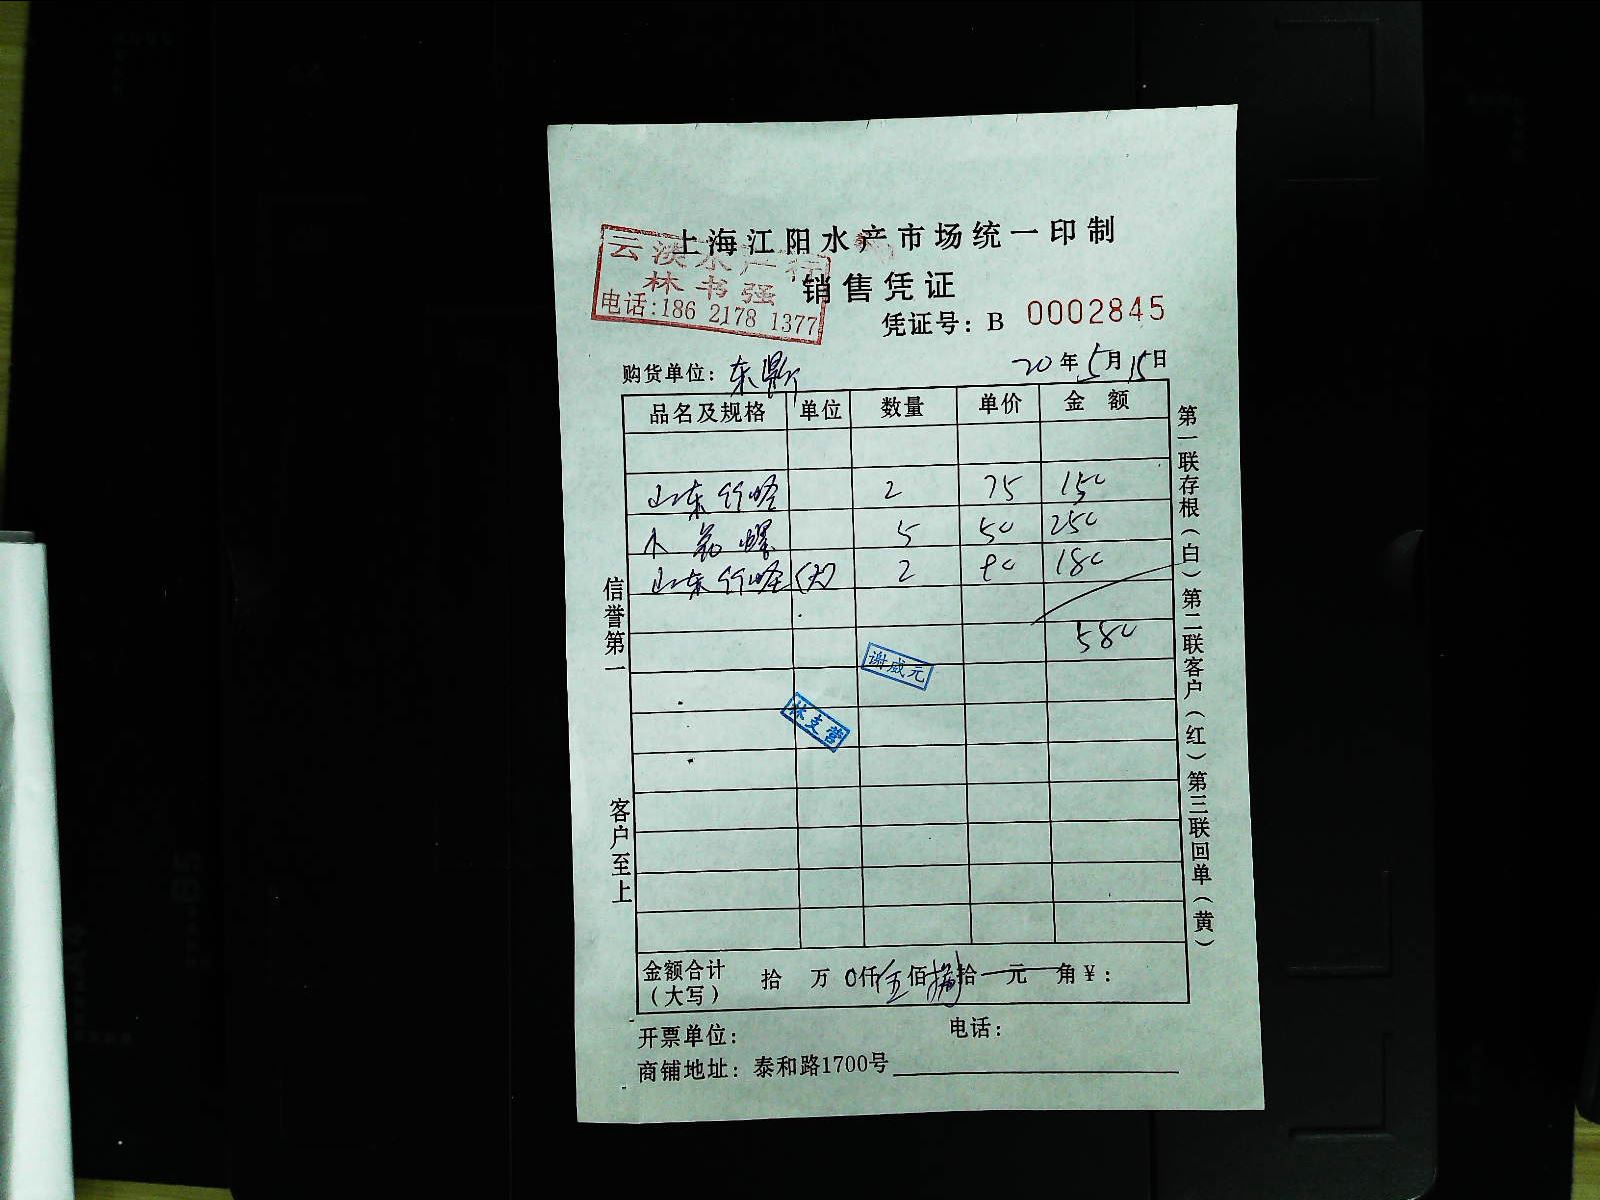 上海江阳水产市场统一印制
云淡水产行
林书强
电话:186 2178 1377
销售凭证
凭证号: B 0002845
购货单位: 东鼎 20年5月15日
品名及规格 单位 数量 单价 金额
山东竹蛏 2 75 150
小 螺 5 50 250
山东竹蛏(大) 2 90 180
580
谢咸元
林支营
信誉第一
客户至上
第一联存根(白)第二联客户(红)第三联回单(黄)
金额合计 拾 万 0仟伍佰捌拾 元 角¥:
(大写)
开票单位: 电话:
商铺地址: 泰和路1700号